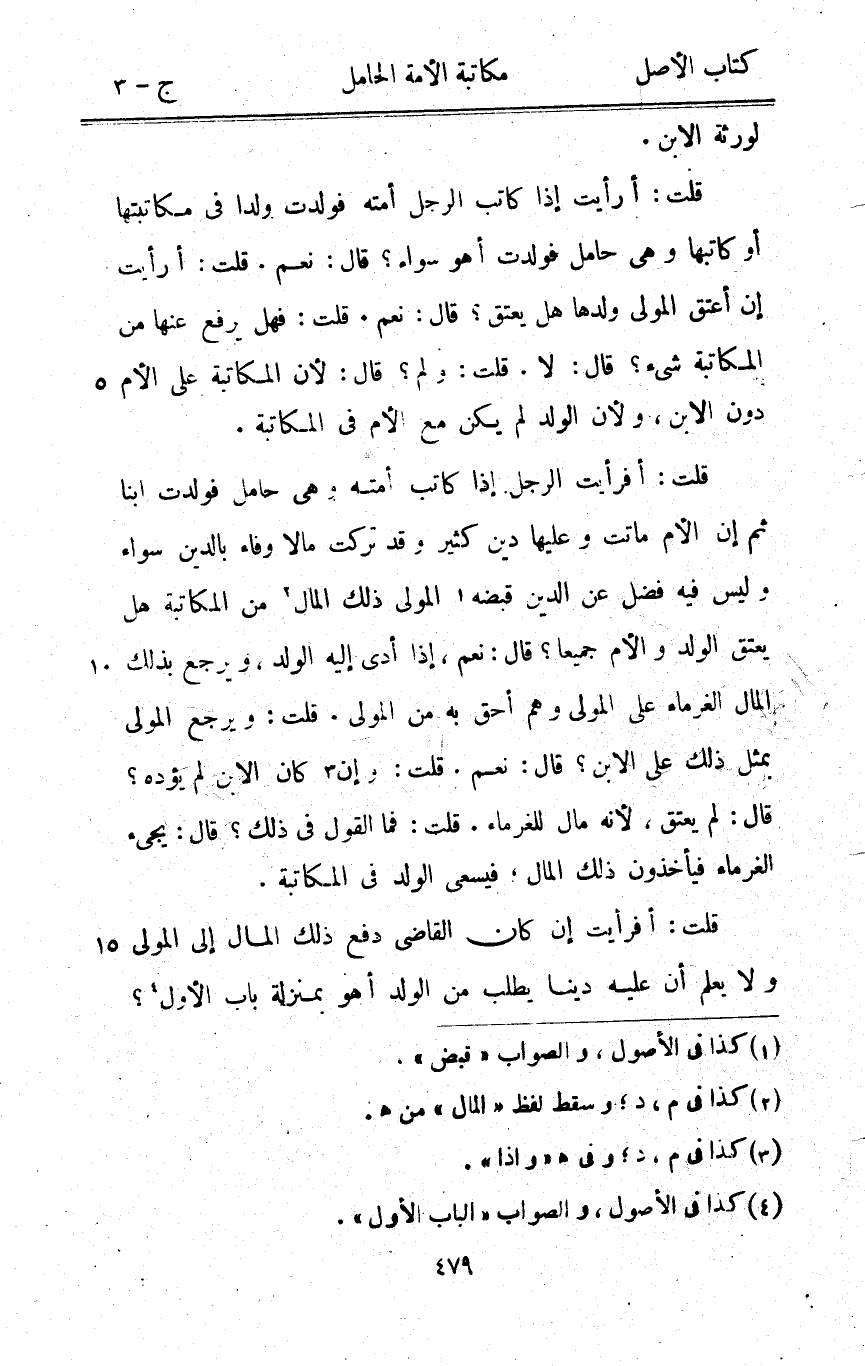 كتاب الأصل مكاتبة الأمة الحامل ج - ٣
لورثة الابن .
قلت : أ رأيت إذا كاتب الرجل أمته فولدت ولدا فى مكاتبتها
أو كاتبها و هى حامل فولدت أ هو سواء ؟ قال : نعم . قلت : أ رأيت
إن أعتق المولى ولدها هل يعتق ؟ قال : نعم . قلت : فهل يرفع عنها من
المكاتبة شىء ؟ قال : لا . قلت : و لم ؟ قال : لأن المكاتبة على الأم ٥
دون الابن ، و لأن الولد لم يكن مع الأم فى المكاتبة .
قلت : أ فرأيت الرجل إذا كاتب أمته و هى حامل فولدت ابنا
ثم إن الأم ماتت و عليها دين كثير و قد تركت مالا وفاء بالدين سواء
و ليس فيه فضل عن الدين قبضه١ المولى ذلك المال٢ من المكاتبة هل
يعتق الولد و الأم جميعا ؟ قال : نعم ، إذا أدى إليه الولد ، و يرجع بذلك ١٠
المال الغرماء على المولى و هم أحق به من المولى . قلت : و يرجع المولى
بمثل ذلك على الابن ؟ قال : نعم . قلت : و إن٣ كان الابن لم يؤده ؟
قال : لم يعتق ، لأنه مال للغرماء . قلت : فما القول فى ذلك ؟ قال : يجىء
الغرماء فيأخذون ذلك المال ؛ فيسعى الولد فى المكاتبة .
قلت : أ فرأيت إن كان القاضى دفع ذلك المال إلى المولى ١٥
و لا يعلم أن عليه دينا يطلب من الولد أ هو بمنزلة باب الأول٤ ؟
(١) كذا فى الأصول ، و الصواب « قبض » .
(٢) كذا فى م ، د ؛ و سقط لفظ « المال » من ه .
(٣) كذا فى م ، د ؛ و فى ه « و اذا » .
(٤) كذا فى الأصول ، و الصواب « الباب الأول » .
٤٧٩